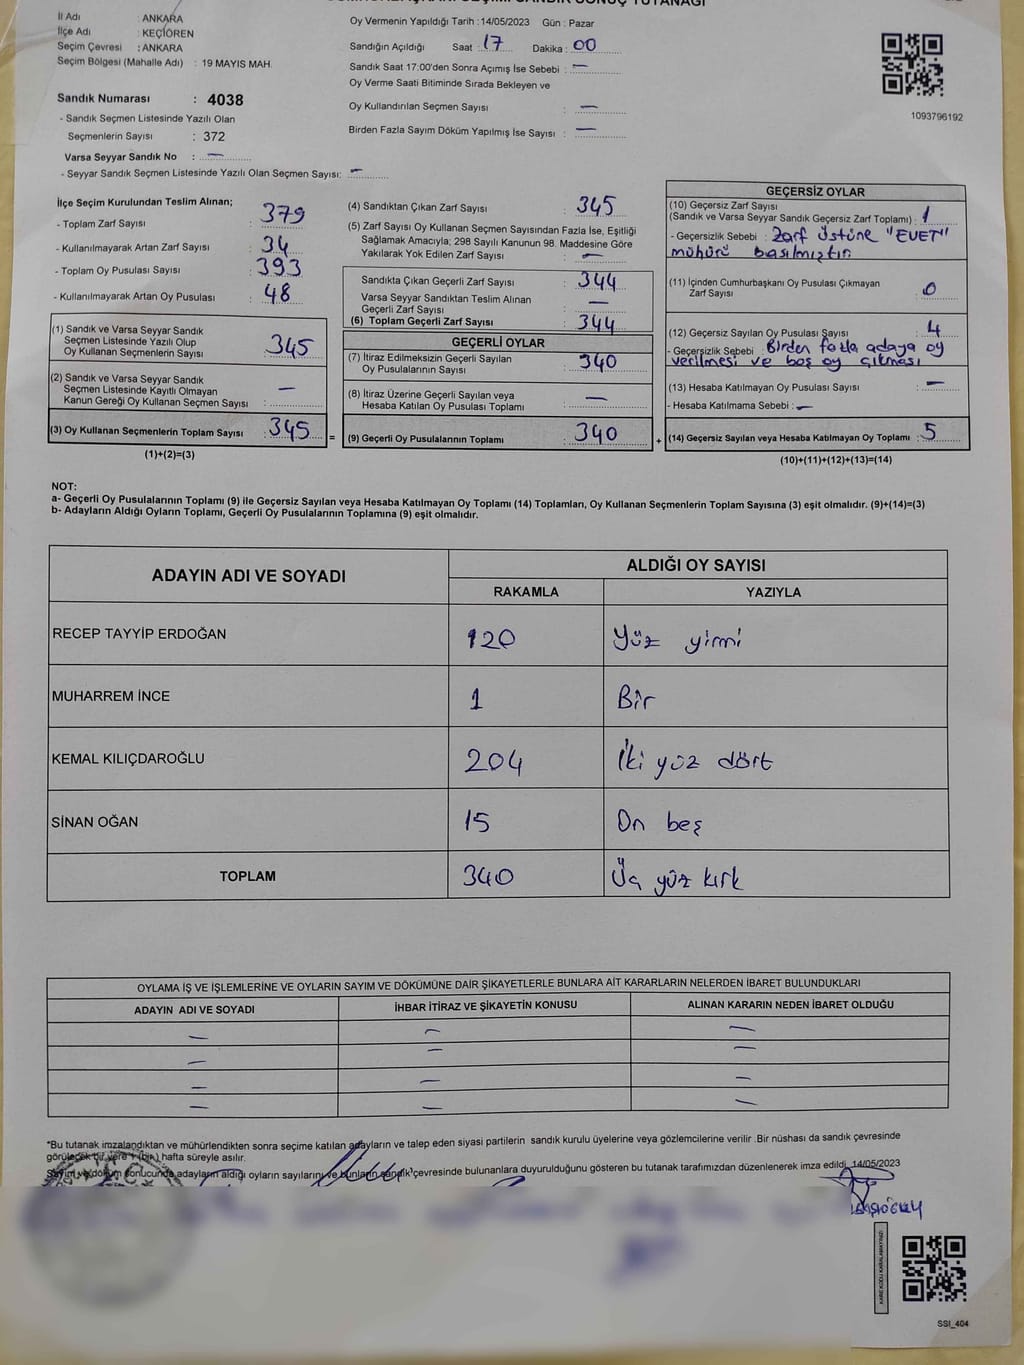 İl Adı : ANKARA
İlçe Adı : KEÇİÖREN
Seçim Çevresi : ANKARA
Seçim Bölgesi (Mahalle Adı) : 19 MAYIS MAH.
Sandık Numarası : 4038
- Sandık Seçmen Listesinde Yazılı Olan
Seçmenlerin Sayısı : 372
Varsa Seyyar Sandık No : —
- Seyyar Sandık Seçmen Listesinde Yazılı Olan Seçmen Sayısı: —
Oy Vermenin Yapıldığı Tarih : 14/05/2023 Gün : Pazar
Sandığın Açıldığı Saat : 17 Dakika : 00
Sandık Saat 17:00'den Sonra Açımış İse Sebebi : —
Oy Verme Saati Bitiminde Sırada Bekleyen ve
Oy Kullandırılan Seçmen Sayısı : —
Birden Fazla Sayım Döküm Yapılmış İse Sayısı : —
1093796192
İlçe Seçim Kurulundan Teslim Alınan;
- Toplam Zarf Sayısı : 379
- Kullanılmayarak Artan Zarf Sayısı : 34
- Toplam Oy Pusulası Sayısı : 393
- Kullanılmayarak Artan Oy Pusulası : 48
(1) Sandık ve Varsa Seyyar Sandık
Seçmen Listesinde Yazılı Olup
Oy Kullanan Seçmenlerin Sayısı : 345
(2) Sandık ve Varsa Seyyar Sandık
Seçmen Listesinde Kayıtlı Olmayan
Kanun Gereği Oy Kullanan Seçmen Sayısı : —
(3) Oy Kullanan Seçmenlerin Toplam Sayısı : 345 =
(1)+(2)=(3)
(4) Sandıktan Çıkan Zarf Sayısı : 345
(5) Zarf Sayısı Oy Kullanan Seçmen Sayısından Fazla İse, Eşitliği
Sağlamak Amacıyla; 298 Sayılı Kanunun 98. Maddesine Göre
Yakılarak Yok Edilen Zarf Sayısı : —
Sandıkta Çıkan Geçerli Zarf Sayısı : 344
Varsa Seyyar Sandıktan Teslim Alınan
Geçerli Zarf Sayısı : —
(6) Toplam Geçerli Zarf Sayısı : 344
GEÇERLİ OYLAR
(7) İtiraz Edilmeksizin Geçerli Sayılan
Oy Pusulalarının Sayısı : 340
(8) İtiraz Üzerine Geçerli Sayılan veya
Hesaba Katılan Oy Pusulası Toplamı : —
(9) Geçerli Oy Pusulalarının Toplamı : 340 +
GEÇERSİZ OYLAR
(10) Geçersiz Zarf Sayısı
(Sandık ve Varsa Seyyar Sandık Geçersiz Zarf Toplamı) : 1
- Geçersizlik Sebebi : Zarf üstüne "EVET"
mühürü basılmıştır
(11) İçinden Cumhurbaşkanı Oy Pusulası Çıkmayan
Zarf Sayısı : 0
(12) Geçersiz Sayılan Oy Pusulası Sayısı : 4
- Geçersizlik Sebebi : Birden fazla adaya oy
verilmesi ve boş oy çıkması
(13) Hesaba Katılmayan Oy Pusulası Sayısı : —
- Hesaba Katılmama Sebebi : —
(14) Geçersiz Sayılan veya Hesaba Katılmayan Oy Toplamı : 5
(10)+(11)+(12)+(13)=(14)
NOT:
a- Geçerli Oy Pusulalarının Toplamı (9) ile Geçersiz Sayılan veya Hesaba Katılmayan Oy Toplamı (14) Toplamları, Oy Kullanan Seçmenlerin Toplam Sayısına (3) eşit olmalıdır. (9)+(14)=(3)
b- Adayların Aldığı Oyların Toplamı, Geçerli Oy Pusulalarının Toplamına (9) eşit olmalıdır.
ADAYIN ADI VE SOYADI
ALDIĞI OY SAYISI
RAKAMLA YAZIYLA
RECEP TAYYİP ERDOĞAN 120 Yüz yirmi
MUHARREM İNCE 1 Bir
KEMAL KILIÇDAROĞLU 204 İki yüz dört
SİNAN OĞAN 15 On beş
TOPLAM 340 Üç yüz kırk
OYLAMA İŞ VE İŞLEMLERİNE VE OYLARIN SAYIM VE DÖKÜMÜNE DAİR ŞİKAYETLERLE BUNLARA AİT KARARLARIN NELERDEN İBARET BULUNDUKLARI
ADAYIN ADI VE SOYADI İHBAR İTİRAZ VE ŞİKAYETİN KONUSU ALINAN KARARIN NEDEN İBARET OLDUĞU
— — —
— — —
— — —
— — —
*Bu tutanak imzalandıktan ve mühürlendikten sonra seçime katılan adayların ve talep eden siyasi partilerin sandık kurulu üyelerine veya gözlemcilerine verilir .Bir nüshası da sandık çevresinde
görülecek bir yere 1 (bir) hafta süreyle asılır.
Sayım ve döküm sonucunda adayların aldığı oyların sayılarını ve bunların sandık çevresinde bulunanlara duyurulduğunu gösteren bu tutanak tarafımızdan düzenlenerek imza edildi. 14/05/2023
KARE KODU KARALAMAYINIZ!
SSI_404